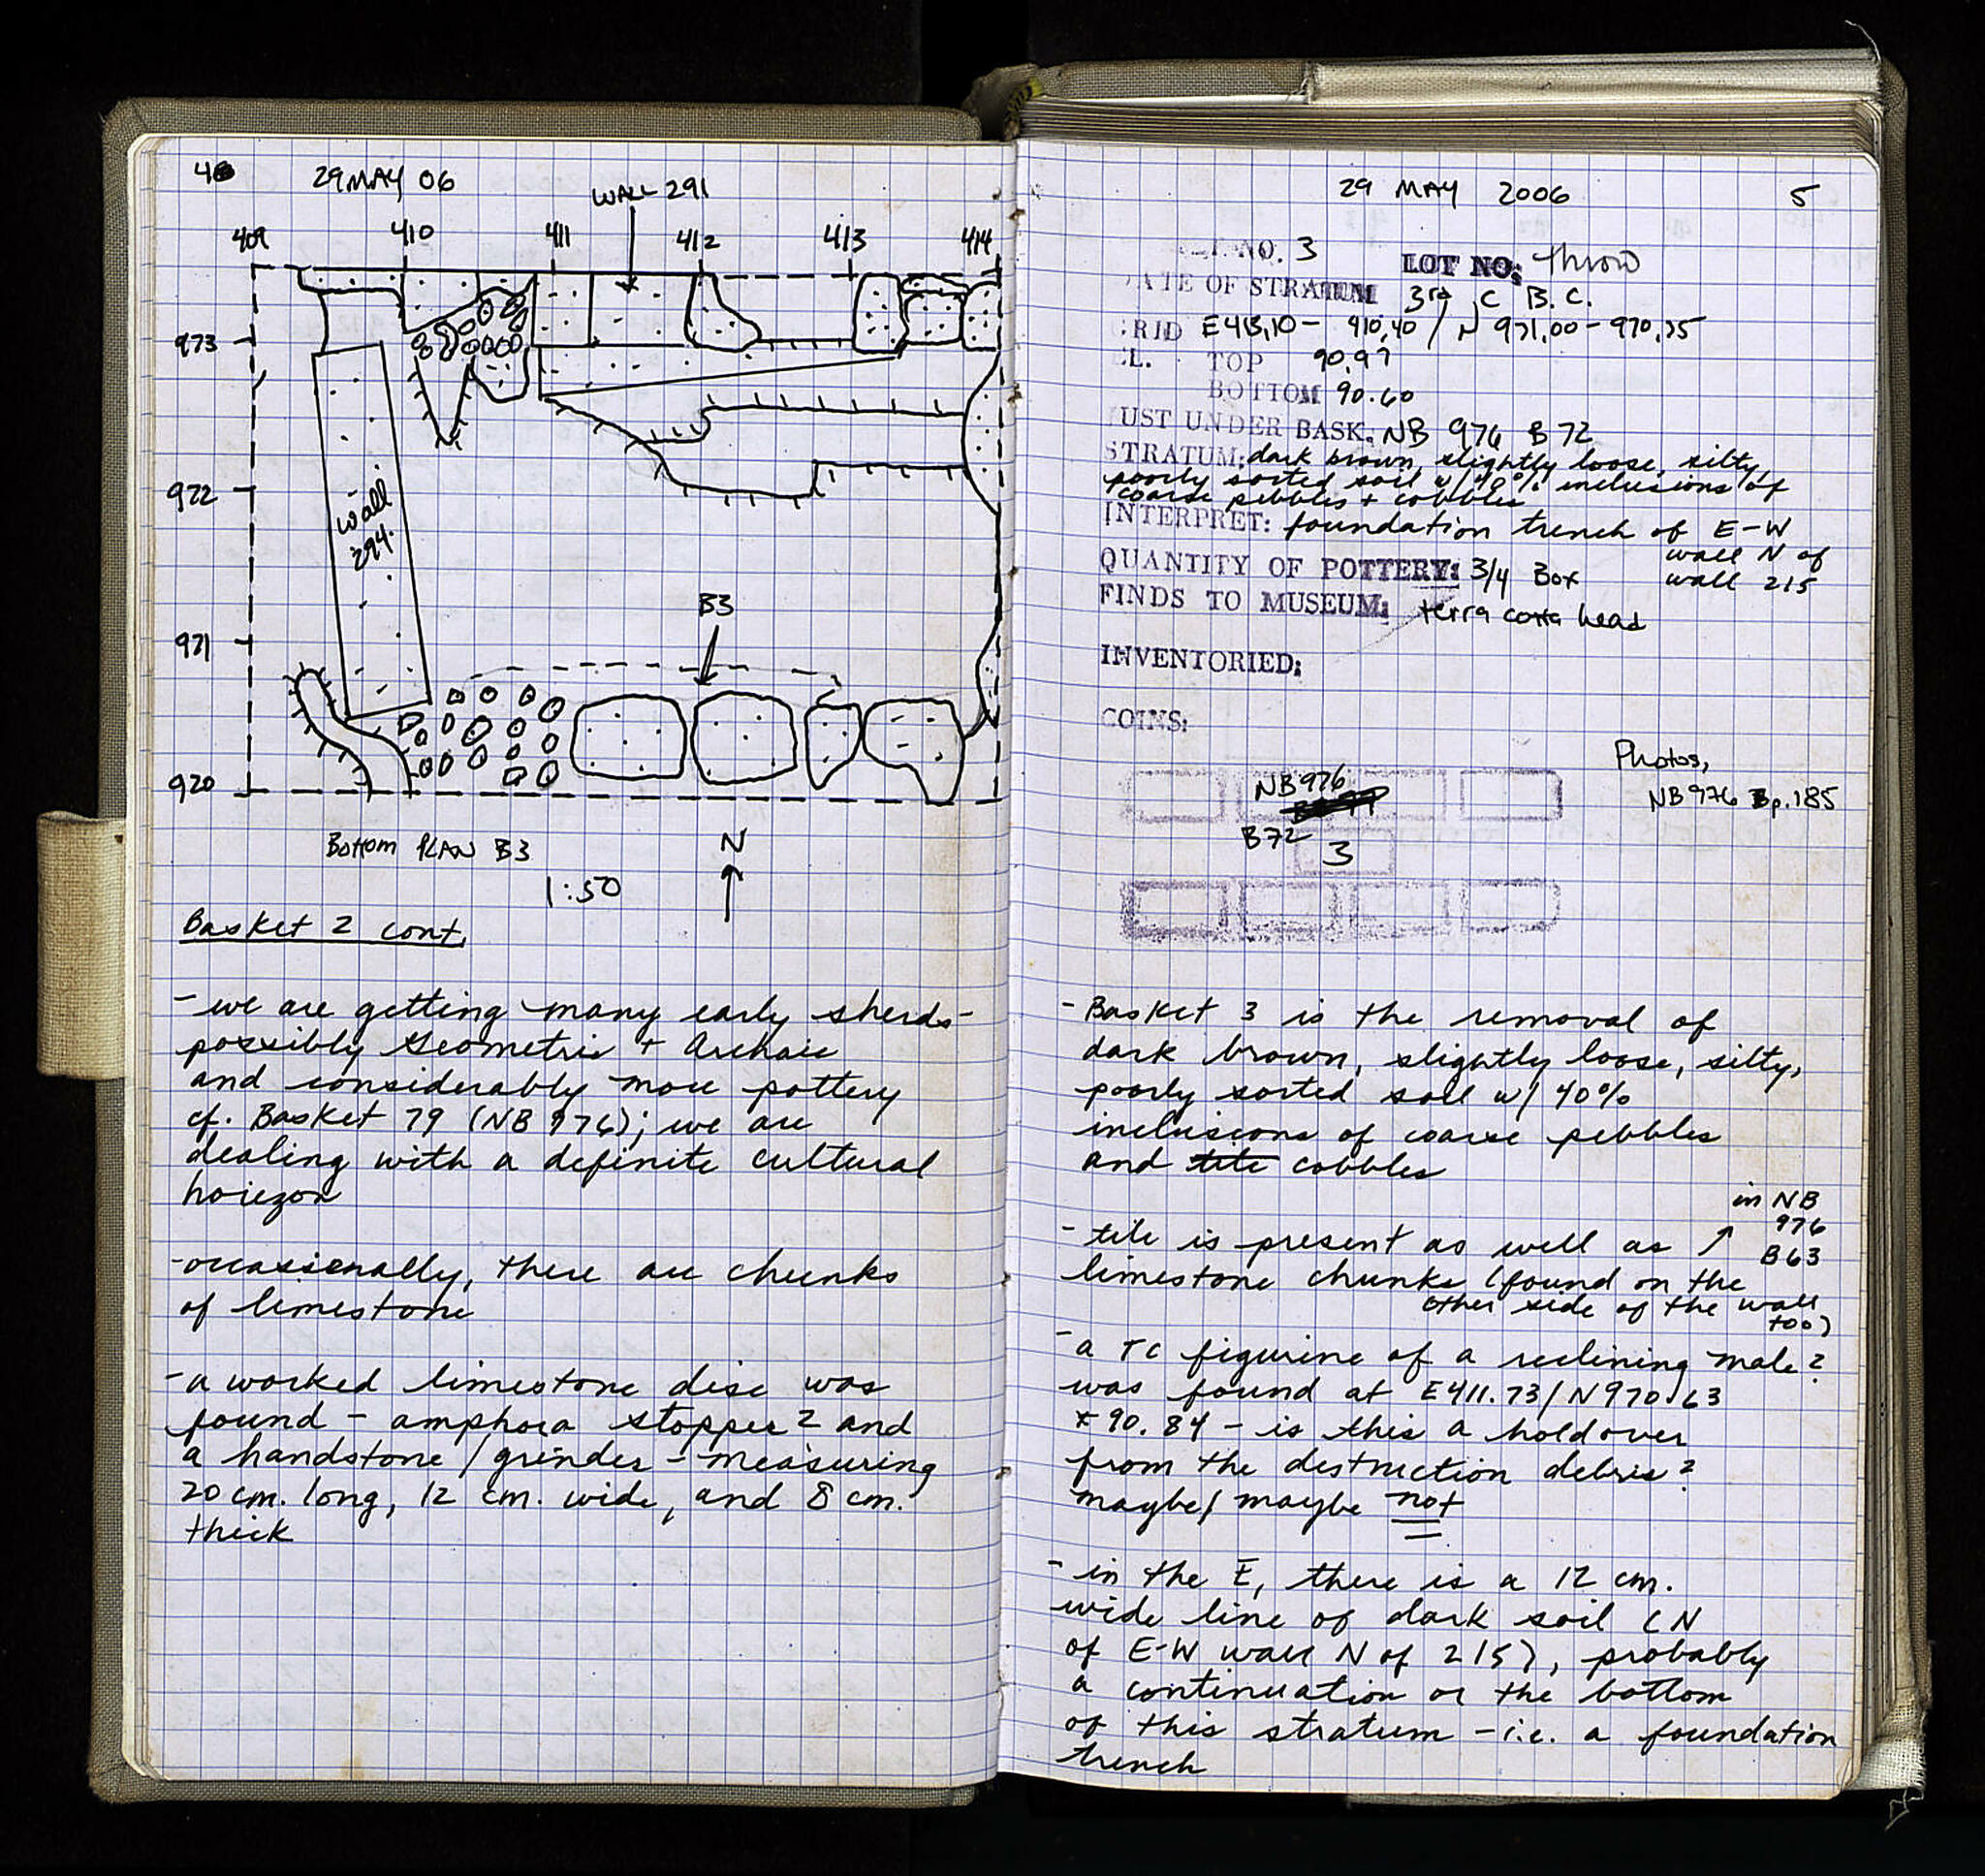 4
29 MAY 06
WALL 291
409 410 411 412 413 414
973
972
wall
294.
971
B3
920
Bottom PLAN B3
N
1:50
Basket 2 cont.
- we are getting many early sherds -
possibly Geometric + Archaic
and considerably more pottery
cf. Basket 79 (NB 976); we are
dealing with a definite cultural
horizon
- occasionally, there are chunks
of limestone
- a worked limestone disc was
found - amphora stopper? and
a handstone / grinder - measuring
20 cm. long, 12 cm. wide, and 8 cm.
thick
29 MAY 2006 5
NO. 3 LOT NO: throw
ATE OF STRATUM 3rd C B.C.
GRID E413,10 - 410,40 / N 971,00 - 970,75
EL. TOP 90.97
BOTTOM 90.60
JUST UNDER BASK. NB 976 B 72
STRATUM: dark brown, slightly loose, silty,
poorly sorted soil w/ 40% inclusions of
coarse pebbles + cobbles
INTERPRET: foundation trench of E-W
wall N of
QUANTITY OF POTTERY: 3/4 Box wall 215
FINDS TO MUSEUM: terra cotta head
INVENTORIED:
COINS:
Photos,
NB 976 p. 185
NB 976
B72
3
- Basket 3 is the removal of
dark brown, slightly loose, silty,
poorly sorted soil w/ 40%
inclusions of coarse pebbles
and tile cobbles
in NB
976
B63
- tile is present as well as ↗
limestone chunks (found on the
other side of the wall
too)
- a TC figurine of a reclining male?
was found at E411.73/N970.63
* 90.84 - is this a holdover
from the destruction debris?
maybe/ maybe not
- in the E, there is a 12 cm.
wide line of dark soil (N
of E-W wall N of 215), probably
a continuation or the bottom
of this stratum - i.e. a foundation
trench